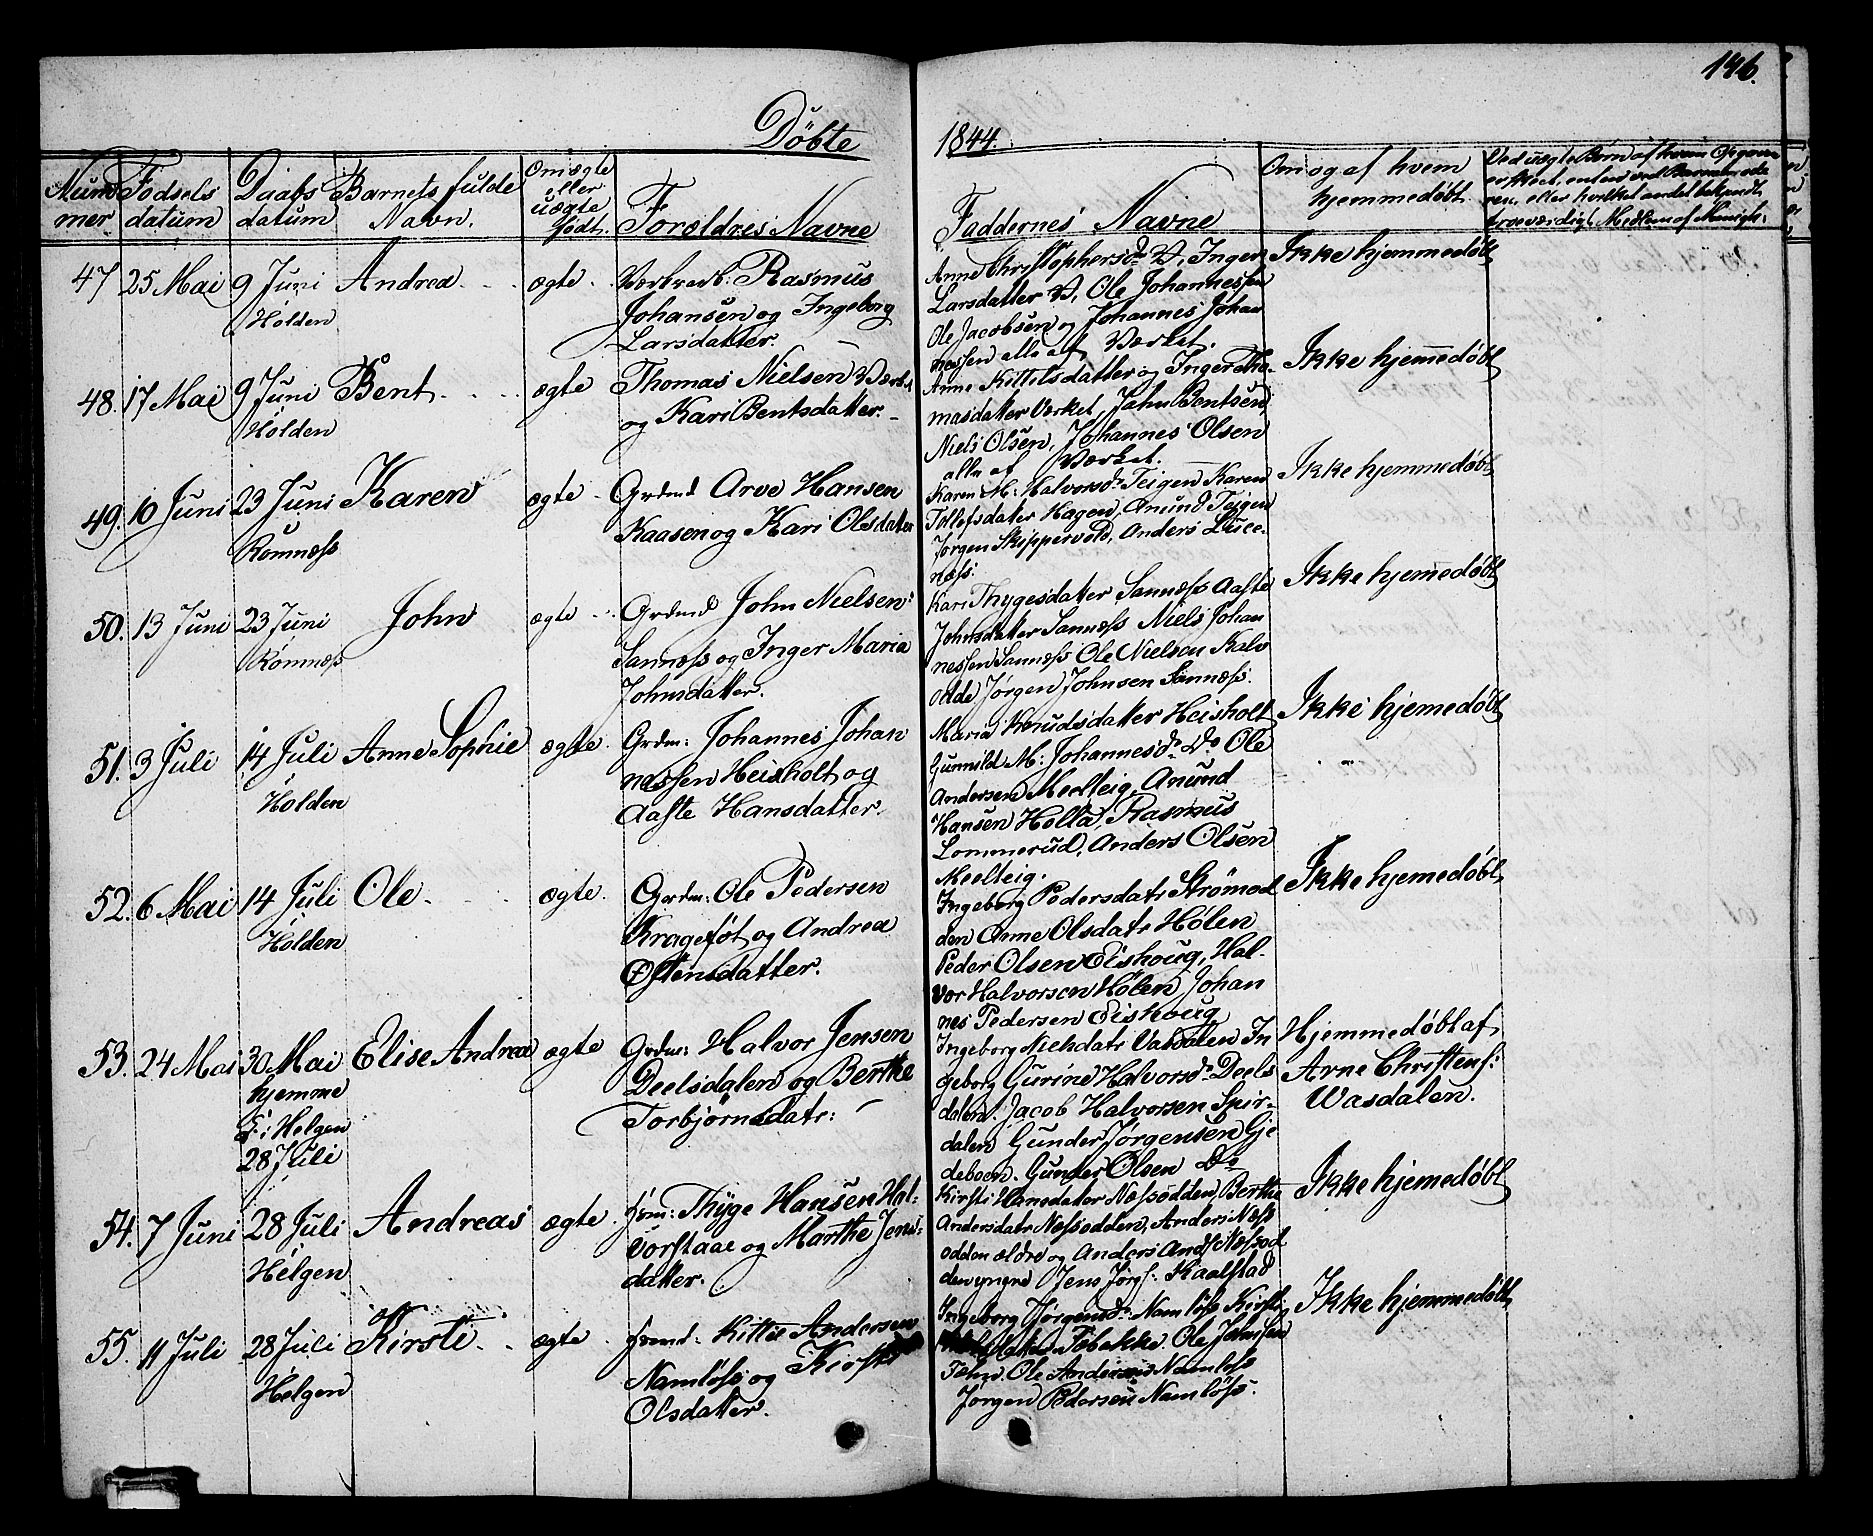 146.
Døbte
1844.
Num̅mer
Fødsels datum
Daabs datum
Barnets fulde Navn.
Om ægte eller uægte født.
Forældres Navne
Faddernes Navne
Om og af hvem hjemmedøbt.
47 25 Mai 9 Juni Holden
Andrea
ægte
Rasmus
Johansen og Ingeborg
Larsdatter.
Anne Christophersd. V, Inger
Larsdatter V, Ole Johannessen
Ole Jacobsen og Johannes Johan
nessen alle af Værket.
Ikke hjemmedøbt
48. 17 Mai 9 Juni Holden
Bent
ægte
Thomas Nielsen Værket
og Kari Bentsdatter.
Anne Kittelsdatter og Inger Tho-
masdatter Verket, John Bentsen
Niels Olsen, Johannes Olsen
alle af Værket.
Ikke hjem̅edøbt
49. 10 Juni 23 Juni Romnæss
Karen
ægte
Grdmd Arve Hansen
Kaasen og Kari Olsdatter
Karen M: Halvorsd. Teigen Karen
Tollefsdater Hagen, Anund Teigen
Jørgen Skippervold, Anders
næss.
Ikke hjemmedøbt
50. 13 Juni 23 Juni Romnæss
John
ægte
Grdmd John Nielsen
Sannæss og Inger Maria
Johnsdatter.
Kari Thygesdater Sannæss Aaste
Johnsdatter Sannæss Niels Johan
nessen Sannæss Ole Nielsen Kalv
odde Jørgen Johnsen Sannæss.
Ikke hjem̅edøbt
51. 3 Juli 14 Juli Holden
Anne Sophie
ægte
Grdm: Johannes Johan
nessen Heisholt og
Aaste Hansdatter.
Maria Knudsdatter Heisholt
Gunnild M: Johannesd. Do Ole
Andersen Melteig, Anund
Hansen Holla, Rasmus
Lommerud, Anders Olsen
Melteig.
Ikke hjemedøbt
52. 6 Mai 14 Juli Holden
Ole
ægte
Grdm: Ole Pedersen
Krageføt og Andrea
Østensdatter.
Ingeborg Pedersdatr Strømod
den Anne Olsdatr Holen
Peder Olsen Eishoug, Hal-
vor Halvorsen Holen Johan
nes Pedersen Eishoug
Ikke hjemedøbt
53. 24 Mai 30 Mai
hjemme
i Helgen
28 Juli
Elise Andrea
ægte
Grdm: Halvor Jensen
Deelsdalen og Berthe
Torbjørnsdatr:
Ingeborg Nielsdatr Vasdalen In
geborg Gurine Halvorsd. Deels
dalen. Jacob Halvorsen Spir-
dalen Gunder Jørgensen Gje
deboen. Gunder Olsen Do
Hjemmedøbt af
Arne Christens:
Wasdalen.
54. 7 Juni 28 Juli Helgen
Andreas
ægte
Thyge Hansen Hal-
vorstaae og Marthe Jens-
datter.
Kirsti Hansdater Næsodden, Berthe
Andersdatr Næsodden, Anders Næss
odden ældre og Anders Ands Næsod
den yngre Jens Jørgs: Kaalstad
Ikke hjemedøbt
55. 11 Juli 28 Juli Helgen
Kirsti
ægte
Kittil Andersen
Namløss og Kirsti
Olsdatter.
Ingeborg Jørgensd. Namløss Kirsti
Ole Johnsen
Ole Andersen Namløss
Jørgen Pedersen Namløss.
Ikke hjemmedøbt